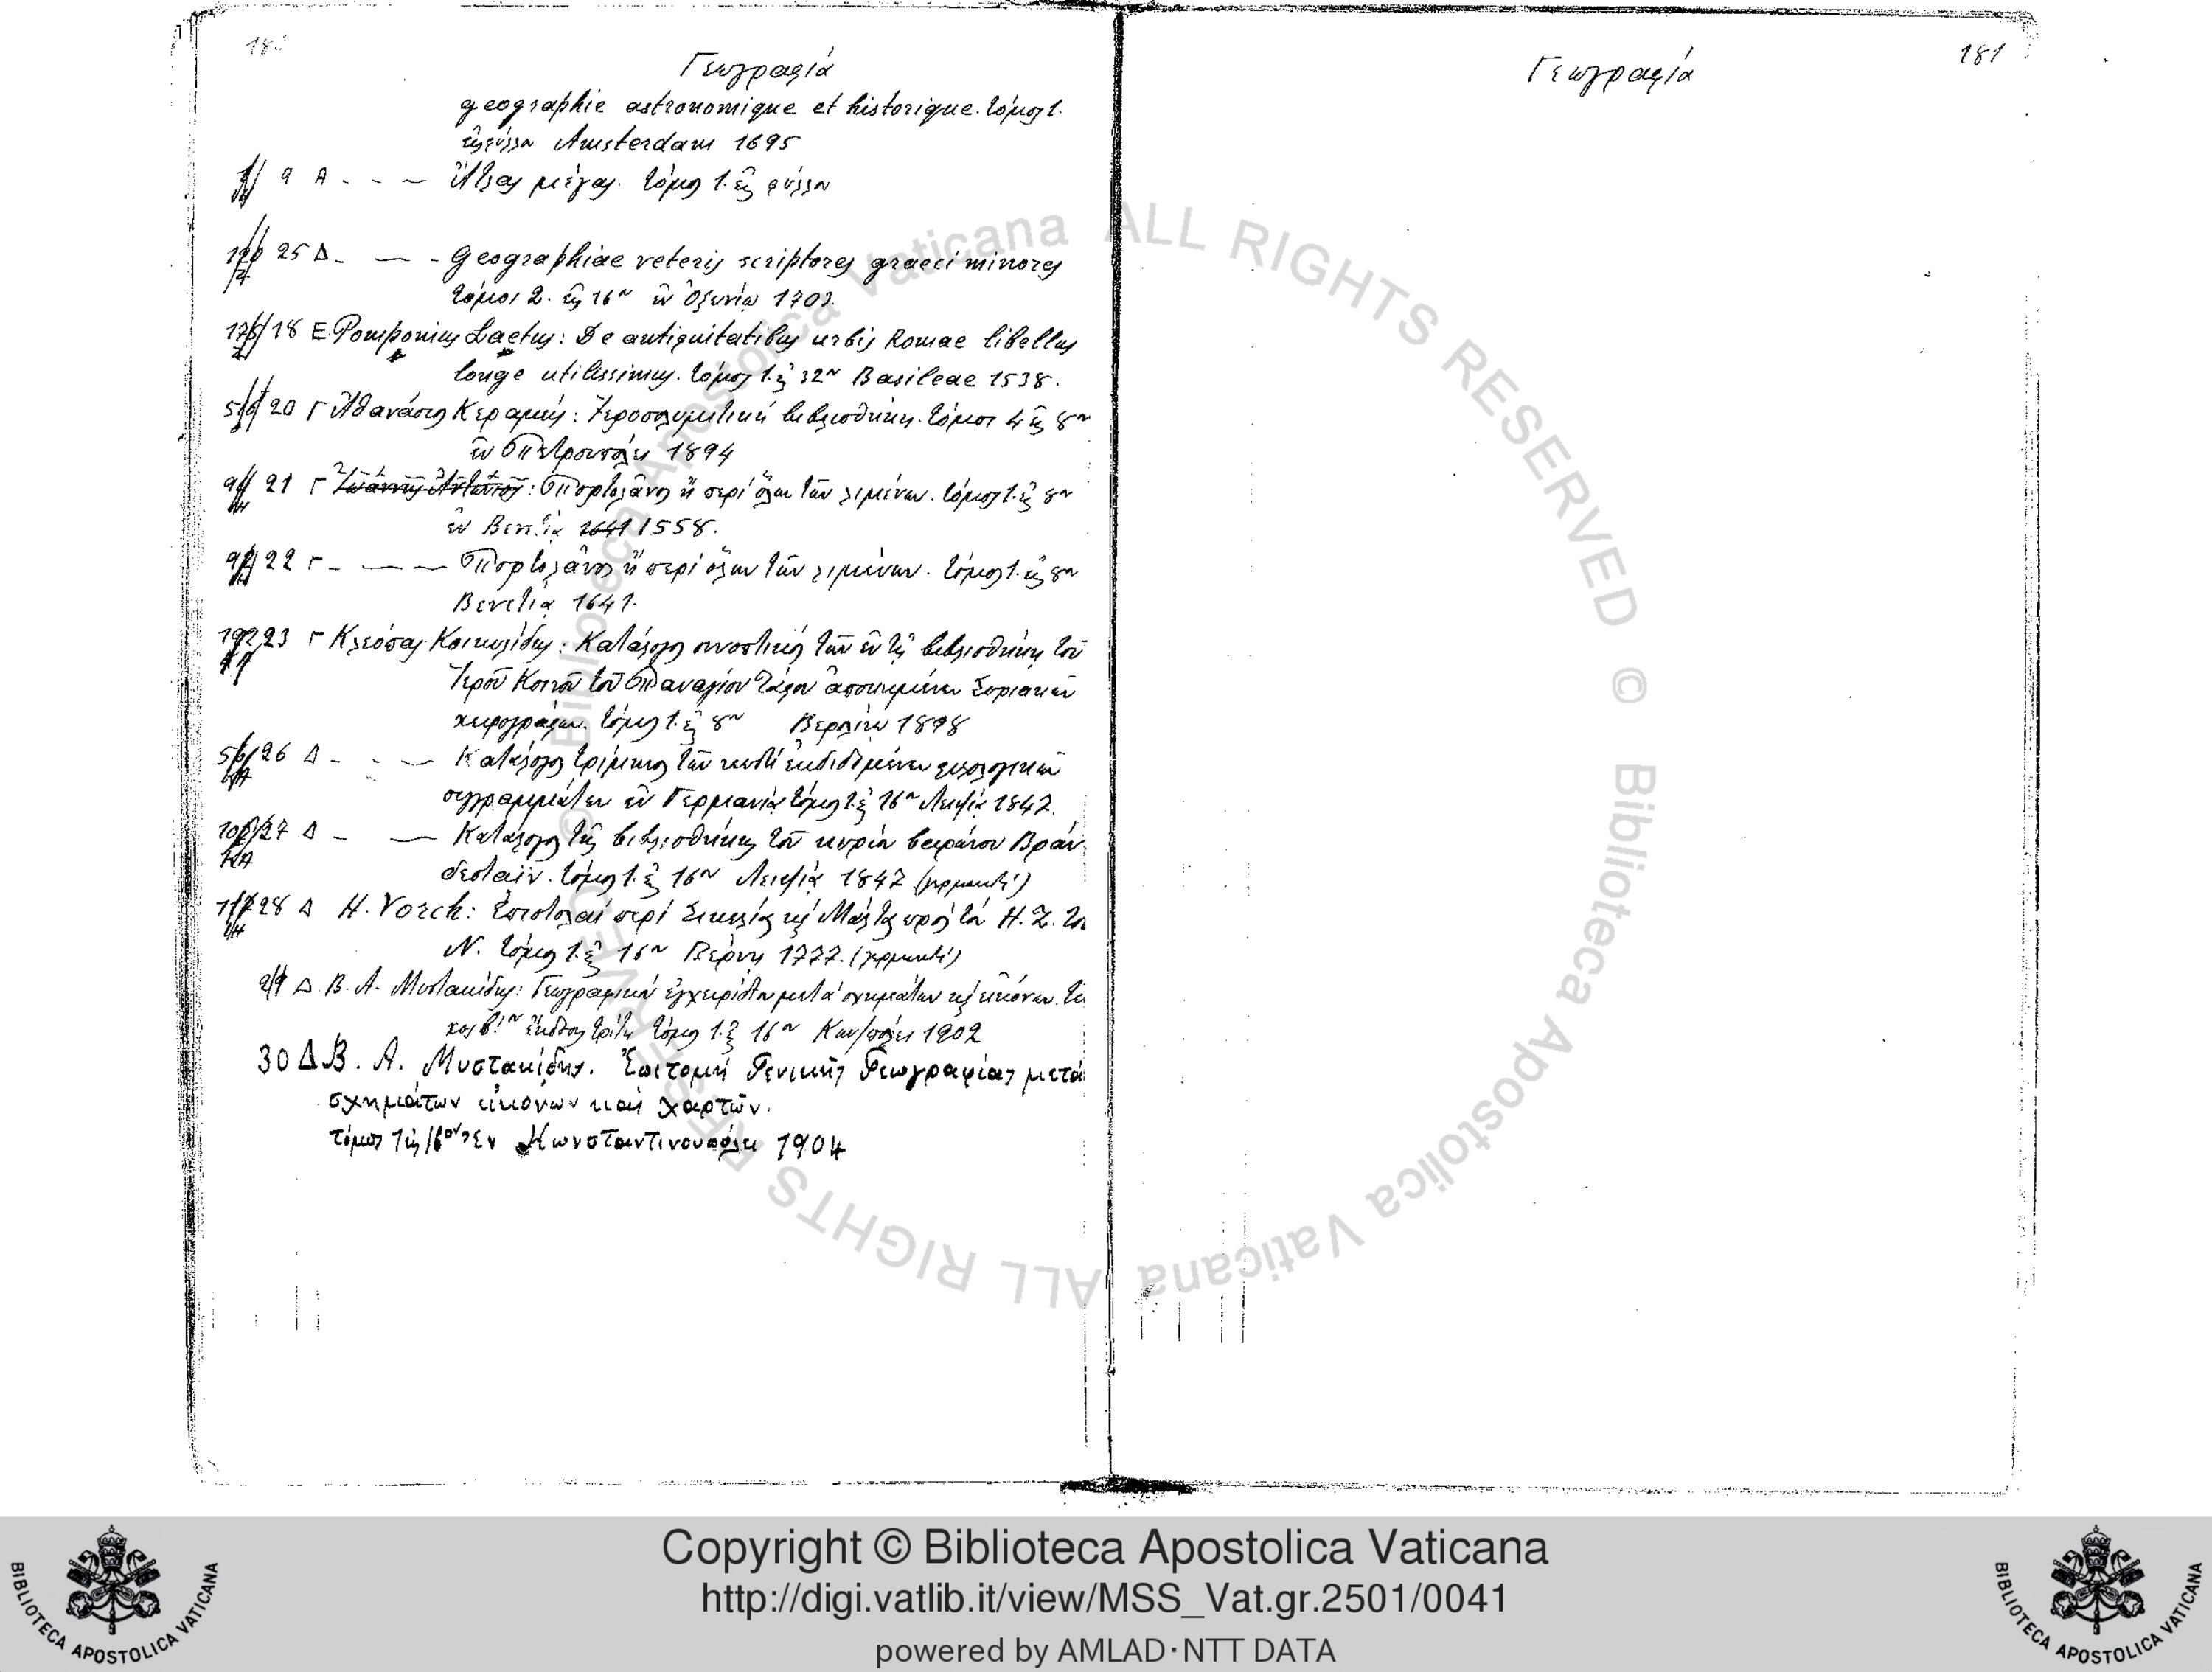 Γεωγραφία
geographie astronomique et historique. τόμος 1.
εἰς φύλλον Amsterdam 1695
9 A - - - Ἄτλας μέγας. τόμος 1. εἰς φύλλον
25 Δ - - - Geographiae veteris scriptores graeci minores
τόμοι 2. εἰς 16ον ἐν Ὀξωνίῳ 1703.
18 Ε Pomponius Laetus: De antiquitatibus urbis Romae libellus
longe utilissimus. τόμος 1. εἰς 32ον Basileae 1538.
20 Γ Ἀθανάσιος Κεραμεύς: Ἱεροσολυμιτική βιβλιοθήκη. τόμοι 4 εἰς 8ον
ἐν Πετρουπόλει 1894
21 Γ : Πορτολᾶνος ἤ περί ὅλων τῶν λιμένων. τόμος 1. εἰς 8ον
ἐν Βενετίᾳ 1641 1558.
22 Γ - - - Πορτολᾶνος ἤ περί ὅλων τῶν λιμένων. τόμος 1. εἰς 8ον
Βενετίᾳ 1641.
23 Γ Κλεόπας Κοικυλίδης: Κατάλογος συνοπτικός τῶν ἐν τῇ βιβλιοθήκῃ τοῦ
Ἱεροῦ Κοινοῦ τοῦ Παναγίου Τάφου ἀποκειμένων Συριακῶν
χειρογράφων. τόμος 1. εἰς 8ον Βερολίνῳ 1898
26 Δ - - - Κατάλογος τρίμηνος τῶν ἐκδιδομένων φιλολογικῶν
συγγραμμάτων ἐν Γερμανίᾳ τόμος 1. εἰς 16ον Λειψίᾳ 1847.
27 Δ - - Κατάλογος τῆς βιβλιοθήκης τοῦ κυρίου Βράν-
δεσταϊν. τόμος 1. εἰς 16ον Λειψίᾳ 1847 (γερμανιστί)
28 Δ H. Vorch: Ἐπιστολαί περί Σικελίας καί Μάλτας πρός τόν H. Z. τοῦ
N. τόμος 1. εἰς 16ον Βέρνῃ 1777. (γερμανιστί)
29 Δ. Β. Α. Μυστακίδης: Γεωγραφικόν ἐγχειρίδιον μετά σχημάτων καί εἰκόνων. τεῦ
χος β!ον ἔκδοσις τρίτη τόμος 1. εἰς 16ον Κων/πόλει 1902
30 Δ Β. Α. Μυστακίδης. Ἐπιτομή Γενικῆς Γεωγραφίας μετά
σχημάτων εἰκόνων καί χαρτῶν.
τόμος 1 εἰς 16ον ἐν Κωνσταντινουπόλει 1904
Γεωγραφία
181
Biblioteca Apostolica Vaticana ALL RIGHTS RESERVED © Biblioteca Apostolica Vaticana ALL RIGHTS RESERVED ©
Copyright © Biblioteca Apostolica Vaticana
http://digi.vatlib.it/view/MSS_Vat.gr.2501/0041
powered by AMLAD·NTT DATA
BIBLIOTECA APOSTOLICA VATICANA
BIBLIOTECA APOSTOLICA VATICANA